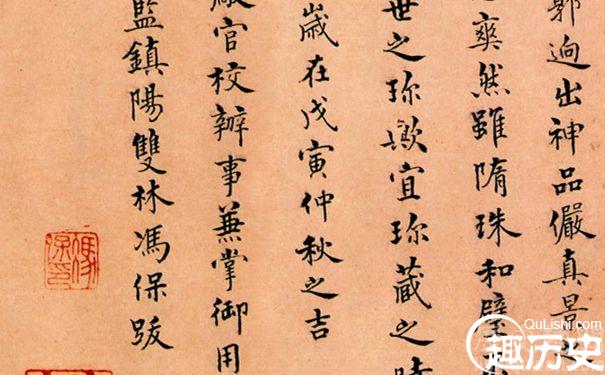 郭逈出神品儼真景之
爽然雖隋珠和璧
世之珍歟宜珍藏之時
歲在戊寅仲秋之吉
廠官校辦事兼掌御用
監鎮陽雙林馮保跋
QuLishi.com
趣历史